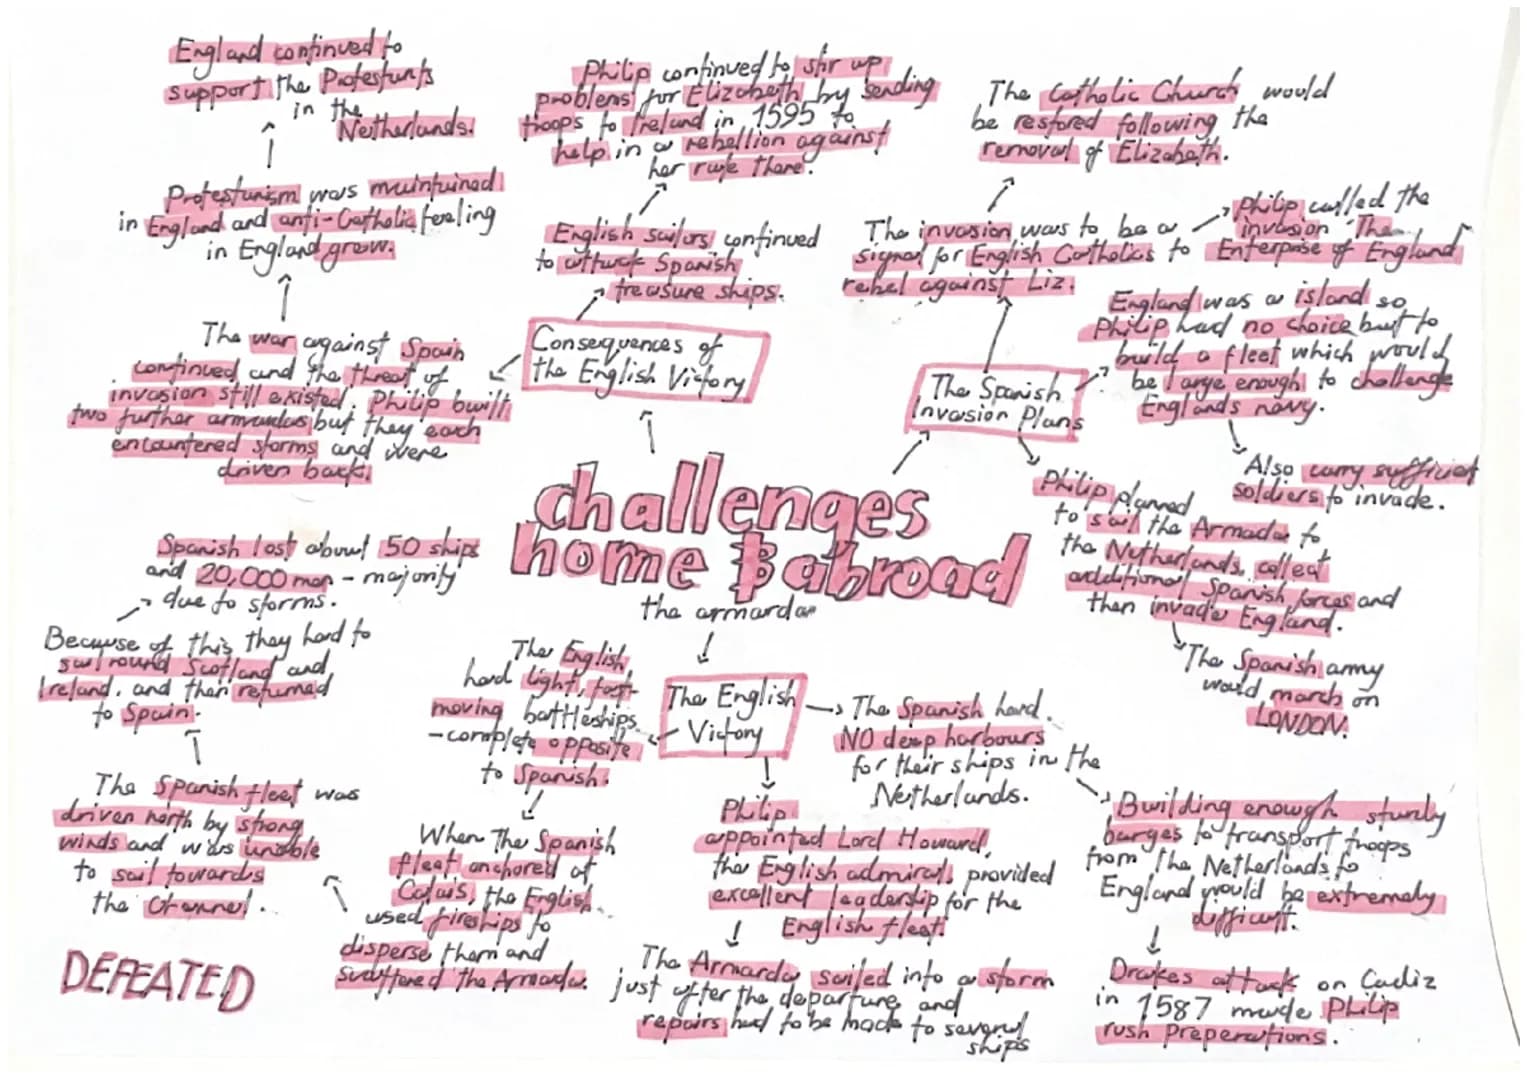 England continued to
support the Protestants
in the
Netherlands.
Protestanism was maintained
in England and anti-Catholic feeling
in England grew.
The war against Spain
continued and the threat of
invasion still existed. Philip built
two further armadas but they each
encountered storms and were
driven back.
Philip continued to stir up
problems for Elizabeth by sending
troops to Ireland in 1595 to
help in a rebellion against
her rule there.
English sailors continued
to attack Spanish
treasure ships.
Consequences of
the English Victory
The Catholic Church would
be restored following the
removal of Elizabeth.
The invasion was to be a
signal for English Catholics to
rebel against Liz.
Philip called the
invasion 'The
Enterprise of England
England was a island so
Philip had no choice but to
build a fleet which would
be large enough to challenge
Englands navy.
The Spanish
Invasion Plans
Also carry sufficient
soldiers to invade.
Philip planned
to sail the Armada to
the Netherlands, collect
additional Spanish forces and
then invade England.
The Spanish army
would march on
LONDON.
challenges
home & abroad
the armarda
Spanish lost about 50 ships
and 20,000 men - majority
due to storms.
Because of this, they had to
sail round Scotland and
Ireland. and then returned
to Spain.
The Spanish fleet was
driven north by strong
winds and was unable
to sail towards
the Channel.
DEFEATED
The English
had light, fast-
moving battleships
- complete opposite
to Spanish.
When The Spanish
fleet anchored at
Calais, the English
used fireships to
disperse them and
scattered the Armada.
The English
Victory
The Spanish had
NO deep harbours
for their ships in the
Netherlands.
Philip
appointed Lord Howard,
the English admiral, provided
excellent leadership for the
English fleet.
The Armada sailed into a storm
just after the departure, and
repairs had to be made to several
ships
Building enough sturdy
barges to transport troops
from the Netherlands to
England would be extremely
difficult.
Drakes attack on Cadiz
in 1587 made Philip
rush preperations.